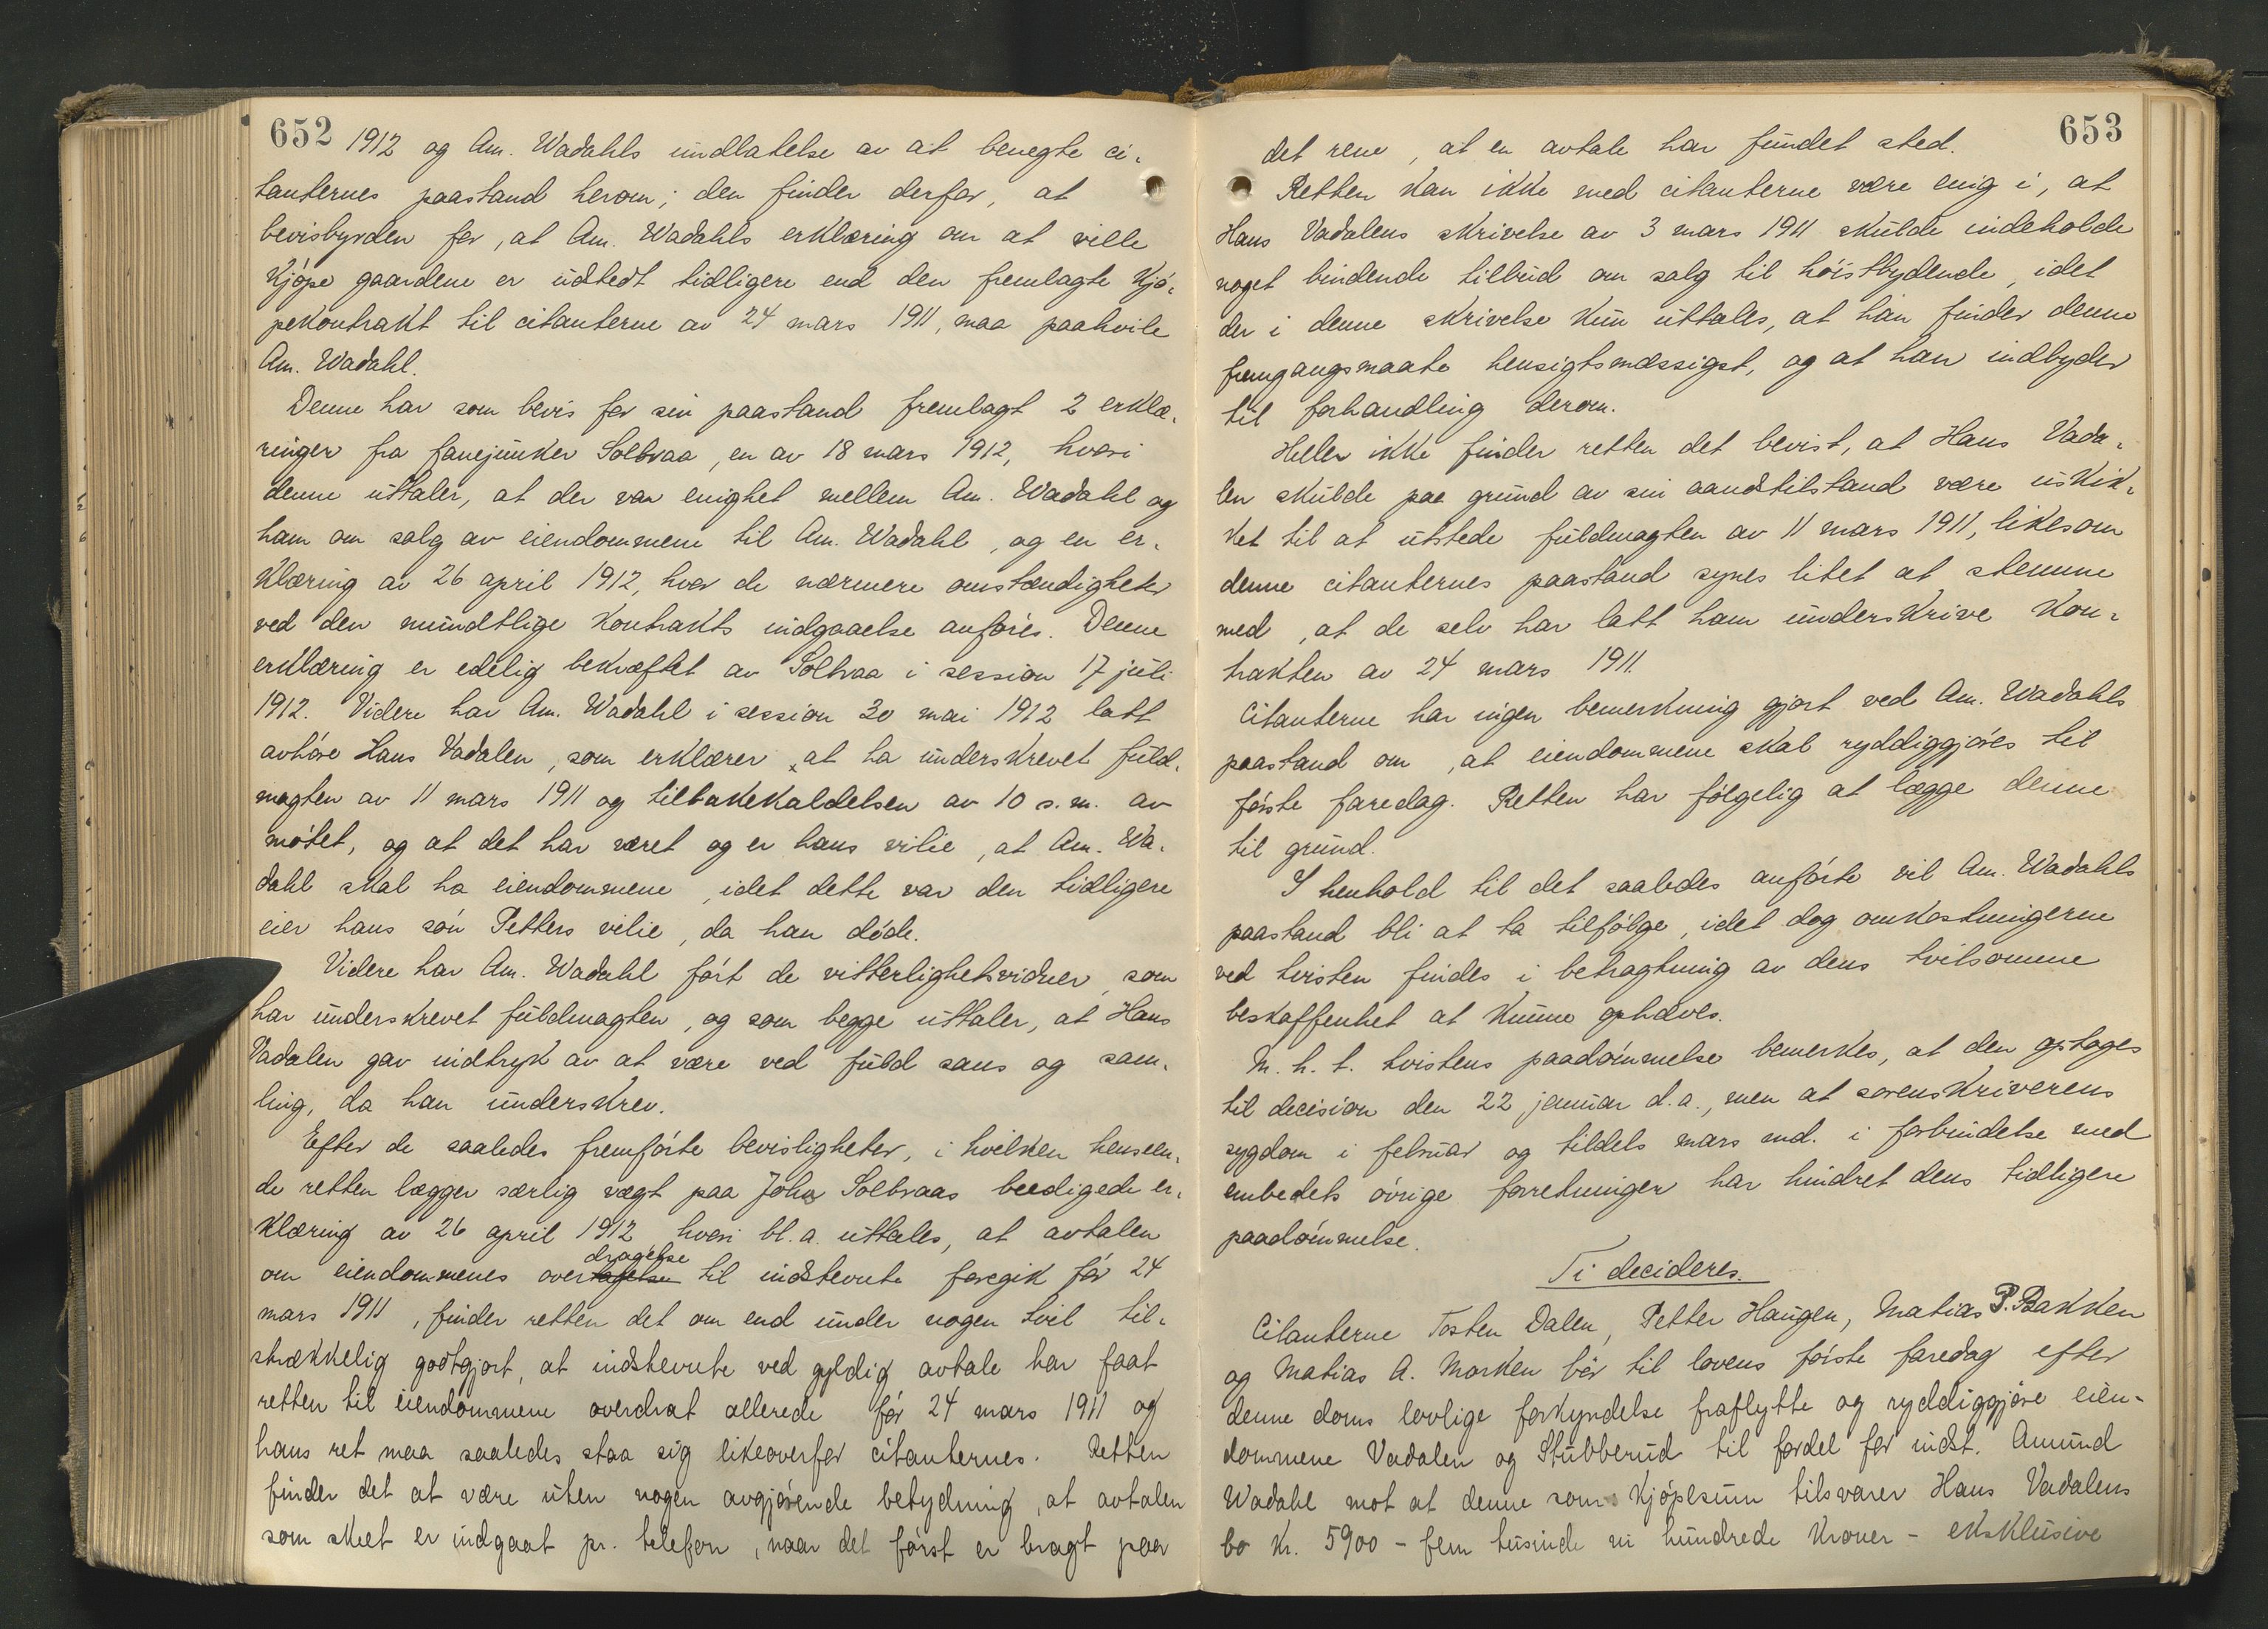 652
1912 og Am. Wadahls undlatelse av at benegte ci-
tanternes paastand herom; den finder derfor, at
bevisbyrden for, at Am. Wadahls erklæring om at ville
kjøpe gaardene er udstedt tidligere end den fremlagte kjø-
pekontrakt til citanterne av 24 mars 1911, maa paahvile
Am. Wadahl.
Denne har som bevis for sin paastand fremlagt 2 erklæ-
ringer fra fanejunker Solbraa, en av 18 mars 1912, hvori
denne uttaler, at der var enighet mellem Am. Wadahl og
ham om salg av eiendommene til Am. Wadahl, og en er-
klæring av 26 april 1912, hvor de nærmere omstændigheter
ved den mundtlige kontrakts indgaaelse anføres. Denne
erklæring er edelig bekræftet av Solbraa i session 17 juli
1912. Videre har Am. Wadahl i session 30 mai 1912 latt
avhøre Hans Vadalen, som erklærer, at ha underskrevet fuld-
magten av 11 mars 1911 og tilbakekaldelsen av 10 s.m. av
møtet, og at det har været og er hans vilie, at Am. Wa-
dahl skal ha eiendommene, idet dette var den tidligere
eier hans søn Petters vilie, da han døde.
Videre har Am. Wadahl ført de vitterlighetsvidner, som
har underskrevet fuldmagten, og som begge uttaler, at Hans
Vadalen gav indtryk av at være ved fuld sans og sam-
ling, da han underskrev.
Efter de saaledes fremførte bevisligheter, i hvilken henseen-
de retten lægger særlig vægt paa Johs Solbraas beedigede er-
klæring av 26 april 1912 hvori bl.a. uttales, at avtalen
dragelse
om eiendommenes overtagelse til indstevnte foregik før 24
mars 1911, finder retten det om end under nogen tvil til-
strækkelig godtgjort, at indstevnte ved gyldig avtale har faat
retten til eiendommene overdrat allerede før 24 mars 1911 og
hans ret maa saaledes staa sig likeoverfor citanternes. Retten
finder det at være uten nogen avgjørende betydning, at avtalen
som skeet er indgaat pr. telefon, naar det først er bragt paa
653
det rene, at en avtale har fundet sted.
Retten kan ikke med citanterne være enig i, at
Hans Vadalens skrivelse av 3 mars 1911 skulde indeholde
noget bindende tilbud om salg til høistbydende, idet
der i denne skrivelse kun uttales, at han finder denne
fremgangsmaate hensigtsmæssigst, og at han indbyder
til forhandling derom.
Heller ikke finder retten det bevist, at Hans Vada-
len skulde paa grund av sin aandstilstand være uskik-
ket til at utstede fuldmagten av 11 mars 1911, likesom
denne citanternes paastand synes litet at stemme
med, at de selv har latt ham underskrive kon-
trakten av 24 mars 1911.
Citanterne har ingen bemerkning gjort ved Am. Wadahls
paastand om, at eiendommene skal ryddiggjøres til
første faredag. Retten har følgelig at lægge denne
til grund.
I henhold til det saaledes anførte vil Am. Wadahls
paastand bli at ta tilfølge, idet dog omkostningerne
ved tvisten findes i betragtning av dens tvilsomme
beskaffenhet at kunne ophæves.
M. h. t. tvistens paadømmelse bemerkes, at den optoges
til decision den 22 januar d.a., men at sorenskriverens
sygdom i februar og tildels mars md. i forbindelse med
embedets øvrige forretninger har hindret dens tidligere
paadømmelse.
Ti decideres.
Citanterne Tosten Dalen, Petter Haugen, Matias P. Bakken
og Matias A. Morken bør til lovens første faredag efter
denne doms lovlige forkyndelse fraflytte og ryddiggjøre eien-
dommene Vadalen og Stubberud til fordel for indst. Amund
Wadahl mot at denne som kjøpesum tilsvarer Hans Vadalens
bo kr. 5900 - fem tusinde ni hundrede kroner - eksklusive